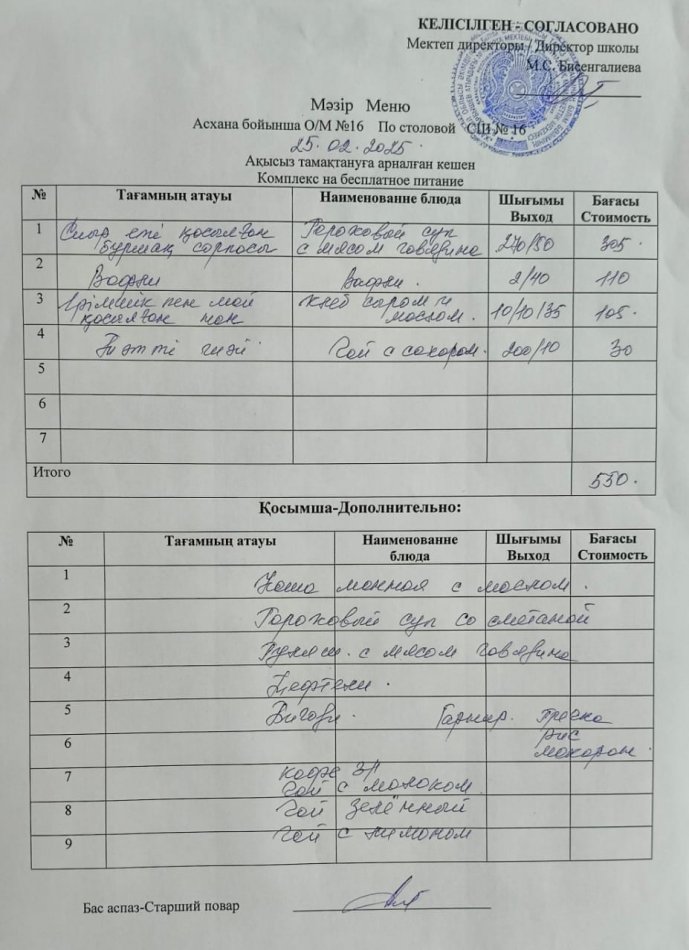 КЕЛІСІЛГЕН - СОГЛАСОВАНО
Мектеп директоры / Директор школы
М.С. Бисенгалиева
Мәзір Меню
Асхана бойынша О/М №16 По столовой СШ № 16
25.02.2025.
Ақысыз тамақтануға арналған кешен
Комплекс на бесплатное питание
№ Тағамның атауы Наименование блюда Шығымы Выход Бағасы Стоимость
1 Сиыр еті қосылған Гороховый суп
бұршақ сорпасы с мясом говядина 270/50 305.
2 Вафли Вафли. 2/40 110
3 Ірімшік пен май хлеб сыром и
қосылған нан маслом. 10/10/35 105.
4 Тәтті шәй Чай с сахаром. 200/10 30
5
6
7
Итого 550.
Қосымша-Дополнительно:
№ Тағамның атауы Наименование блюда Шығымы Выход Бағасы Стоимость
1 Каша манная с маслом.
2 Гороховый суп со сметаной
3 Гуляш. с мясом говядина
4 Тефтели.
5 Гарнир. Гречка
6 рис
макарон.
7 кофе 3/1
чай с молоком
8 Чай зелённый
9 чай с лимоном
Бас аспаз-Старший повар